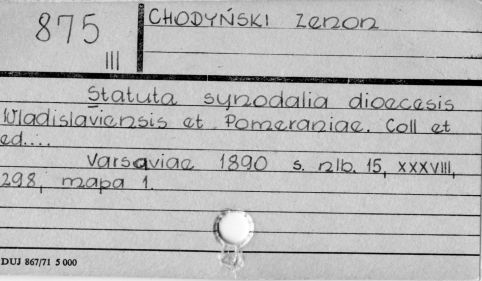 875 CHODYŃSKI Zenon
III
Statuta synodalia dioecesis
Wladislaviensis et Pomeraniae. Coll et
ed....
Varsaviae 1890 s. nlb. 15, XXXVIII,
298, mapa 1.
DUJ 867/71 5 000